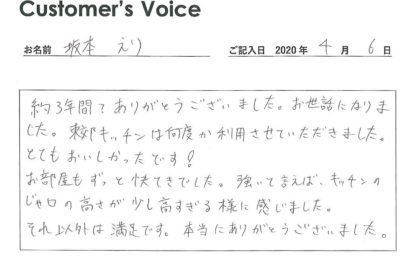 Customer's Voice
お名前 坂本 えり ご記入日 2020年 4月 6日
約3年間でありがとうございました。お世話になりま
した。東邦キッチンは何度か利用させていただきました。
とてもおいしかったです!
お部屋もずっと快てきでした。強いて言えば、キッチンの
じゃ口の高さが少し高すぎる様に感じました。
それ以外は満足です。本当にありがとうございました。